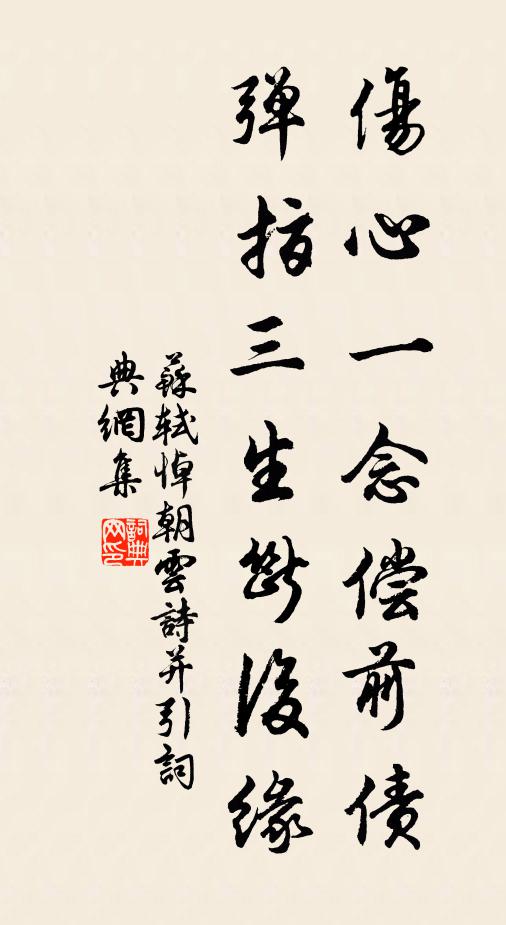 傷心一念偿前债
彈指三生斷後緣
蘇軾悼朝雲詩并引詞
典網集
詞典
网印